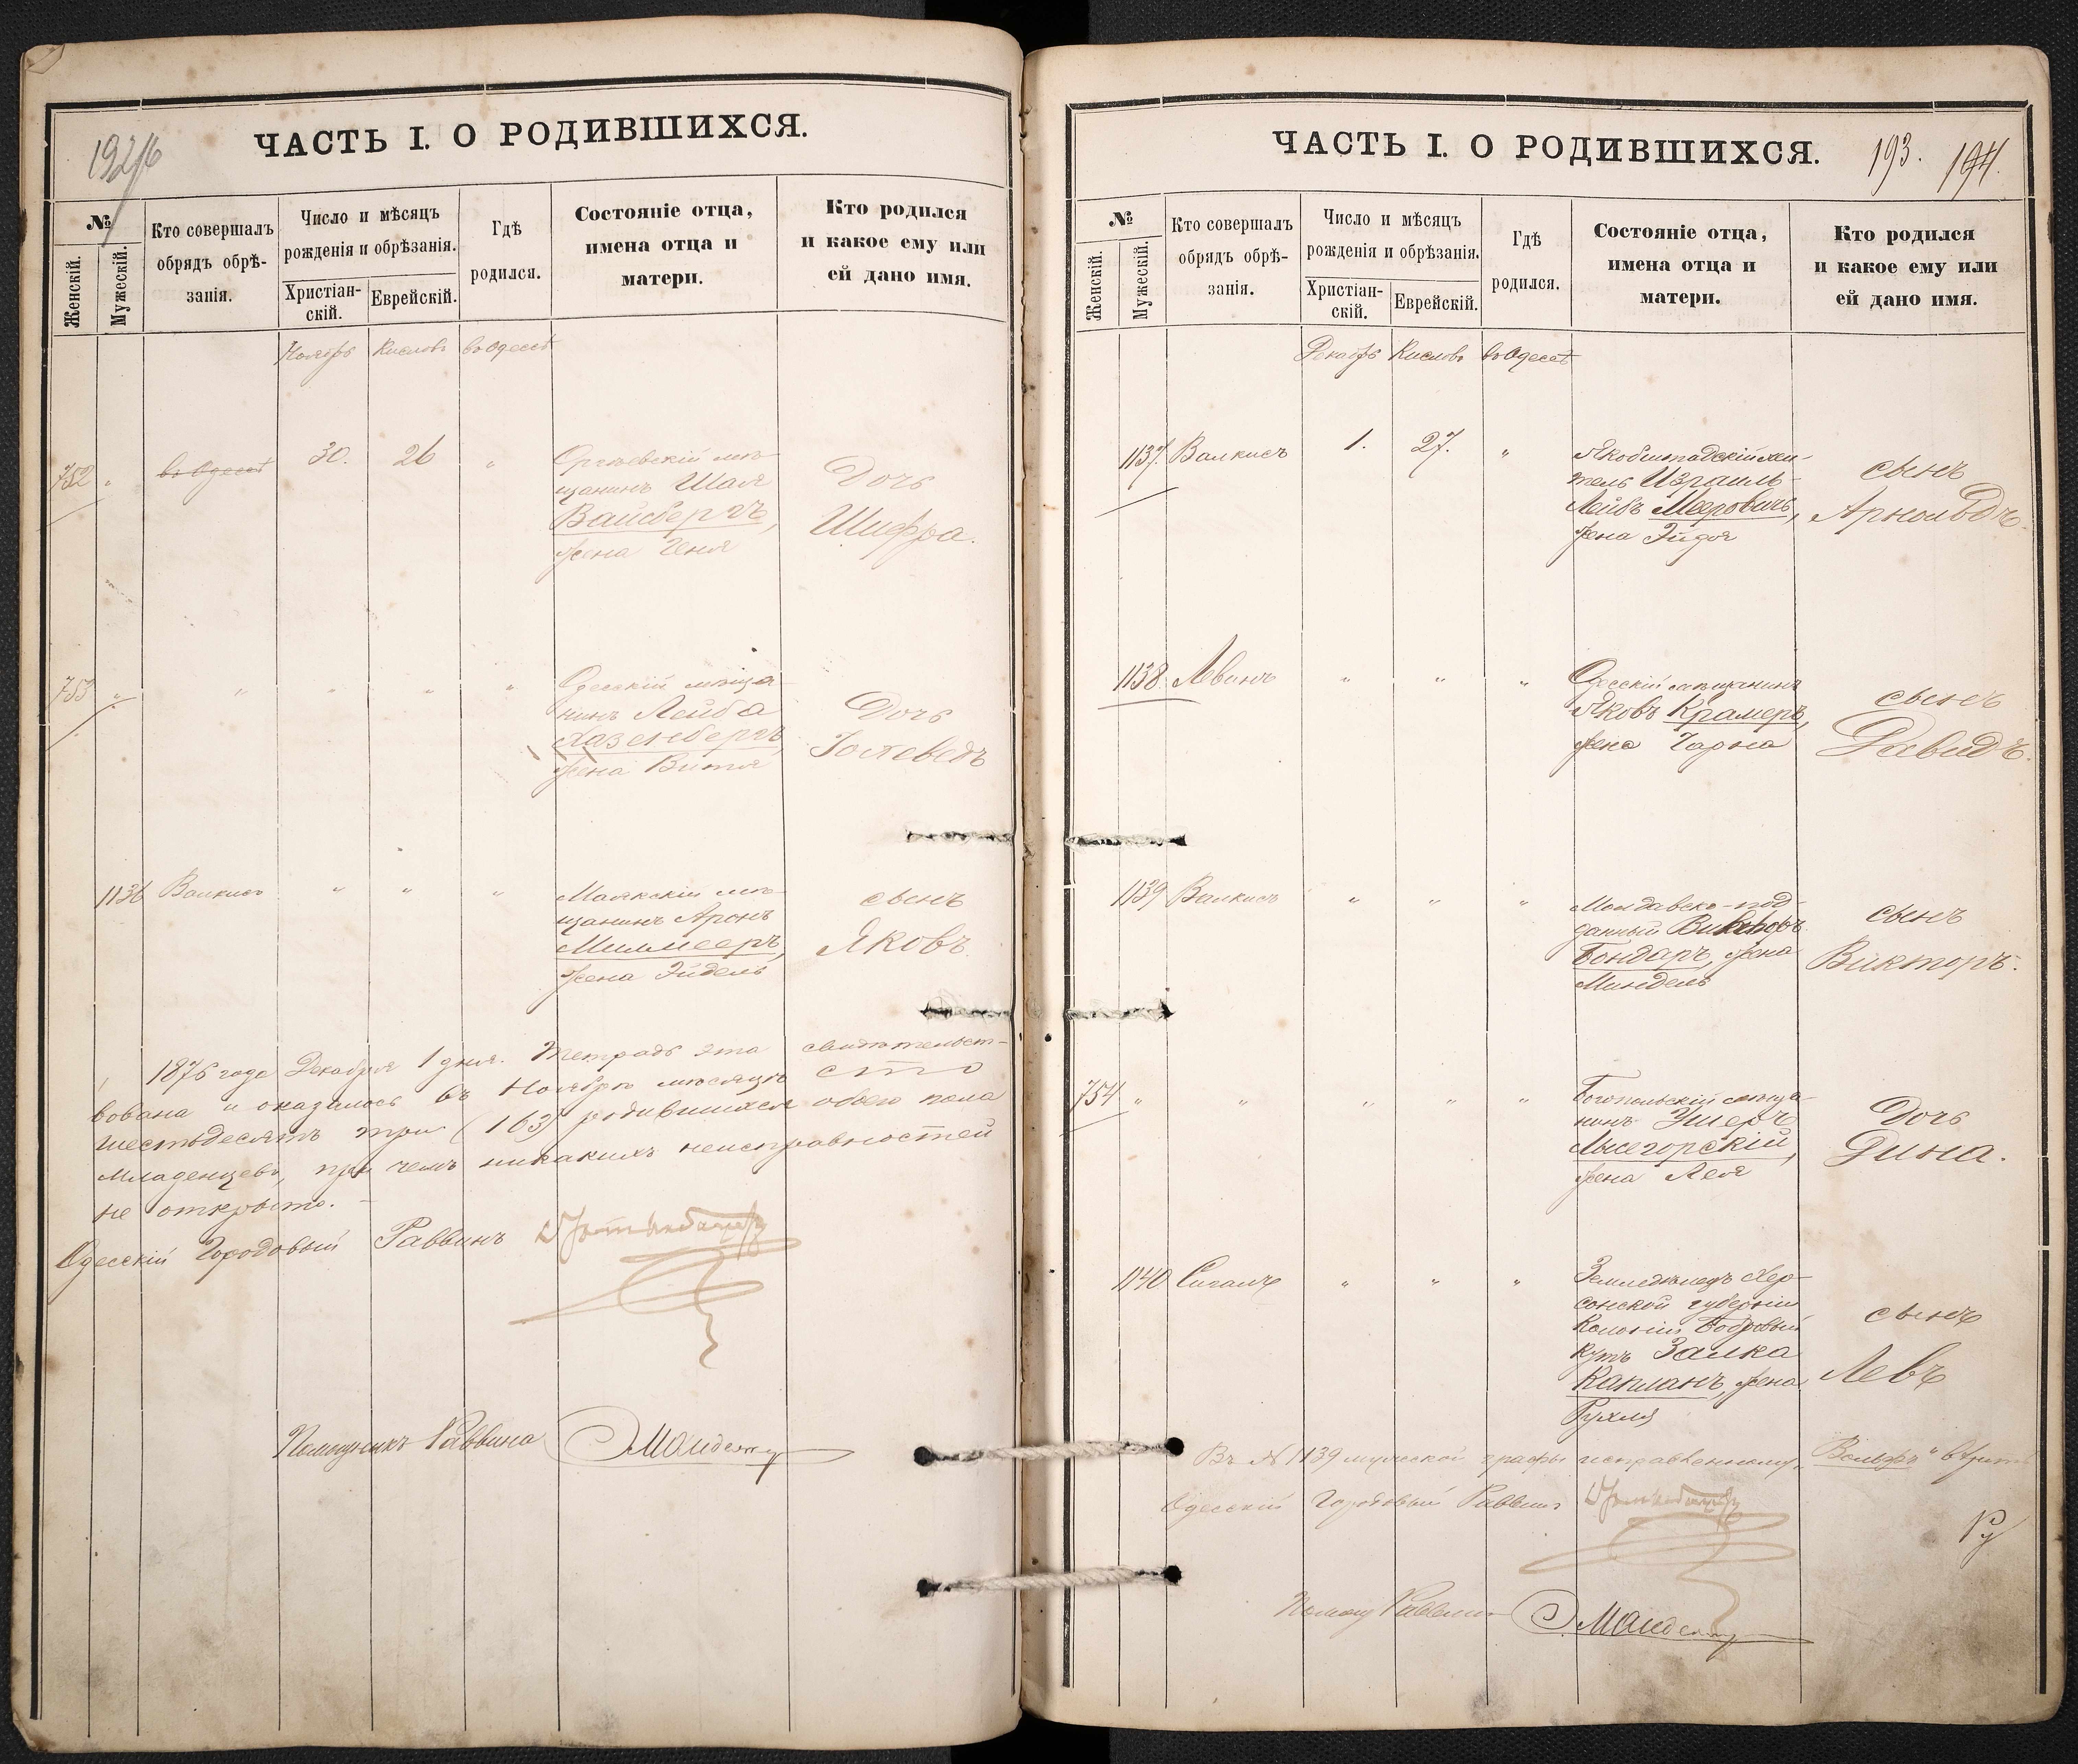 ЧАСТЬ I. О РОДИВШИХСЯ.
№
Женскій.
Мужескій.
Кто совершалъ
обрядъ обрѣ-
занія.
Число и мѣсяцъ
рожденія и обрѣзанія.
Христіан-
скій.
Еврейскій.
Гдѣ
родился.
Состояніе отца,
имена отца и
матери.
Кто родился
и какое ему или
ей дано имя.
Ноябрь Кислевъ въ Одессѣ
752 " въ Одессѣ 30. 26 "
Оргѣевскій мѣ-
щанинъ Шая
Вайсбергъ,
жена Геня
Дочь
Шифра.
753 " " " " "
Одесскій мѣща-
нинъ Лейба
Хазенбергъ,
жена Витя
Дочь
Іохеведъ
1136 Валкисъ " " "
Маякскій мѣ-
щанинъ Аронъ
жена Эйдель
сынъ
Яковъ.
1876 года Декабря 1 дня. Тетрадь эта свидѣтельст-
вована и оказалось въ Ноябрѣ мѣсяцѣ сто
шестьдесятъ три (163) родившихся обоего пола
младенцевъ, при чемъ никакихъ неисправностей
не открыто. –
Одесскій Городовый Раввинъ
Помощникъ Раввина
ЧАСТЬ I. О РОДИВШИХСЯ.
193. 194.
№
Женскій.
Мужескій.
Кто совершалъ
обрядъ обрѣ-
занія.
Число и мѣсяцъ
рожденія и обрѣзанія.
Христіан-
скій.
Еврейскій.
Гдѣ
родился.
Состояніе отца,
имена отца и
матери.
Кто родился
и какое ему или
ей дано имя.
Декабрь Кислевъ въ Одессѣ
1137. Валкисъ 1. 27. "
Якобштадскій жи-
тель Израиль-
Лейбъ Мееровичъ,
жена Эйдля
сынъ
Арнольдъ.
1138 Левинъ " " "
Одесскій мѣщанинъ
Яковъ Крамеръ,
жена Чарна
сынъ
Давидъ.
1139 Валкисъ " " "
Молдавско-под-
данный
Бондаръ, жена
Миндель
сынъ
Викторъ.
754 " " " " "
Богопольскій мѣща-
нинъ Ушеръ
Лысегорскій,
жена Лея
Дочь
Дина.
1140 Сигалъ " " "
Земледѣлецъ Хер-
сонской губерніи
Колоніи Бобровый
Кутъ Залка
Капланъ, жена
Рухля
сынъ
Левъ
Въ № 1139 мужеской графы исправленному "Вольфъ" вѣрить
Одесскій Городовый Раввинъ
Помощ Раввина